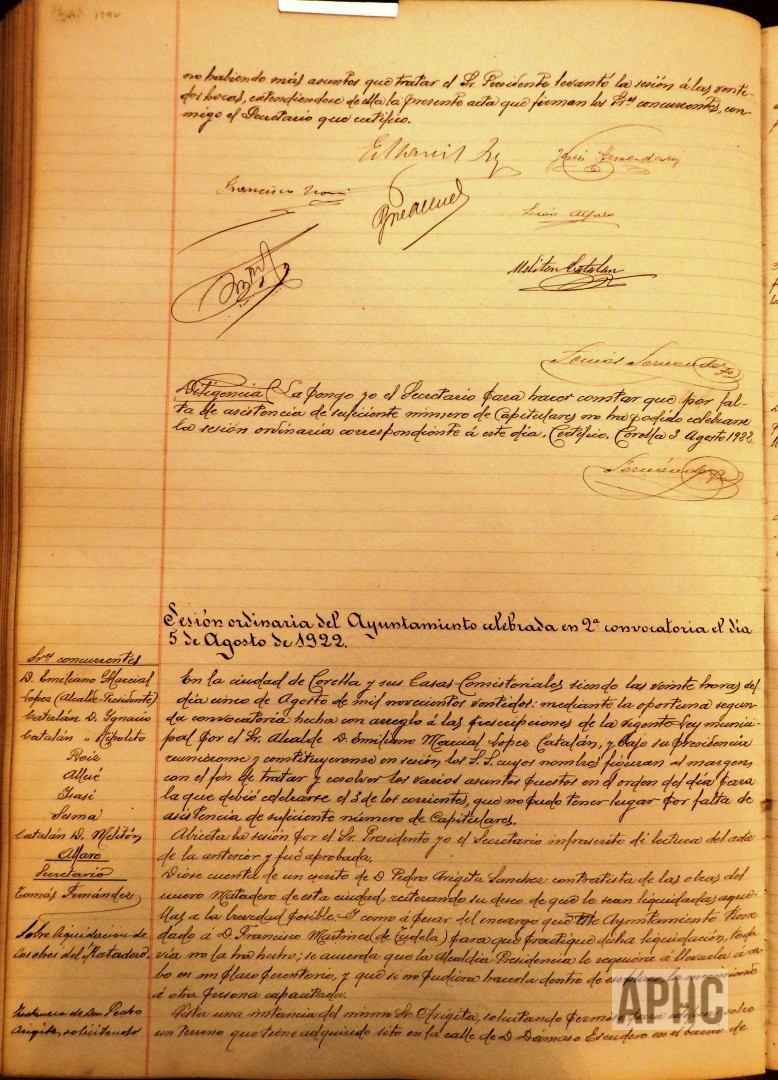 no habiendo más asuntos que tratar el Sr. Presidente levantó la sesión á las veinte
dos horas, extendiendose de ella la presente acta que firman los Sres concurrentes, con-
migo el Secretario que certifico.
Francisco
Luis Alfaro
Meliton Catalan
Tomás Fernández
Diligencia
La pongo yo el Secretario para hacer constar que por fal-
ta de asistencia de suficiente número de Capitulares no ha podido celebrarse
la sesión ordinaria correspondiente á este día. Certifico. Corella 3 Agosto 1922
Fernández
Sesión ordinaria del Ayuntamiento celebrada en 2ª convocatoria el día
5 de Agosto de 1922.
Sres concurrentes
D. Emiliano Marcial
Lopez (Alcalde-Presidente)
Catalán D. Ignacio
Catalán " Hipolito
Roiz
Allué
Isasi
Sesma
Catalán D. Melitón
Alfaro
Secretario
Tomás Fernández
En la ciudad de Corella y sus Casas Consistoriales siendo las veinte horas del
día cinco de Agosto de mil novecientos ventidos: mediante la oportuna segun-
da convocatoria hecha con arreglo á las prescripciones de la vigente Ley munici-
pal por el Sr. Alcalde D. Emiliano Marcial Lopez Catalán, y bajo su presidencia
reunieronse y constituyeronse en sesión los S.S. cuyos nombres figuran al margen,
con el fin de tratar y resolver los varios asuntos puestos en el orden del día para
la que debió celebrarse el 3 de los corrientes, que no pudo tener lugar por falta de
asistencia de suficiente número de Capitulares.
Abierta la sesión por el Sr. Presidente yo el Secretario infrascrito dí lectura del acta
de la anterior y fué aprobada.
Sobre liquidacion de
las obras del Matadero.
Diose cuenta de un escrito de D. Pedro Arigita Sanchez contratista de las obras del
nuevo Matadero de esta ciudad, reiterando su deseo de que le sean liquidadas aque-
llas a la brevedad posible. Y como á pesar del encargo que este Ayuntamiento tiene
dado á D. Francisco Martinez (de Tudela) para que practique dicha liquidación, toda-
vía no la ha hecho; se acuerda que la Alcaldía Presidencia le requiera á llevarla á ca-
bo en un plazo perentorio, y que si no pudiera hacerla dentro de
á otra persona capacitada.
Instancia de Don Pedro
Arigita, solicitando
Vista una instancia del mismo Sr. Arigita, solicitando permiso para
un terreno que tiene adquirido sito en la calle de D. Dámaso Escudero en el barrio de
APHC